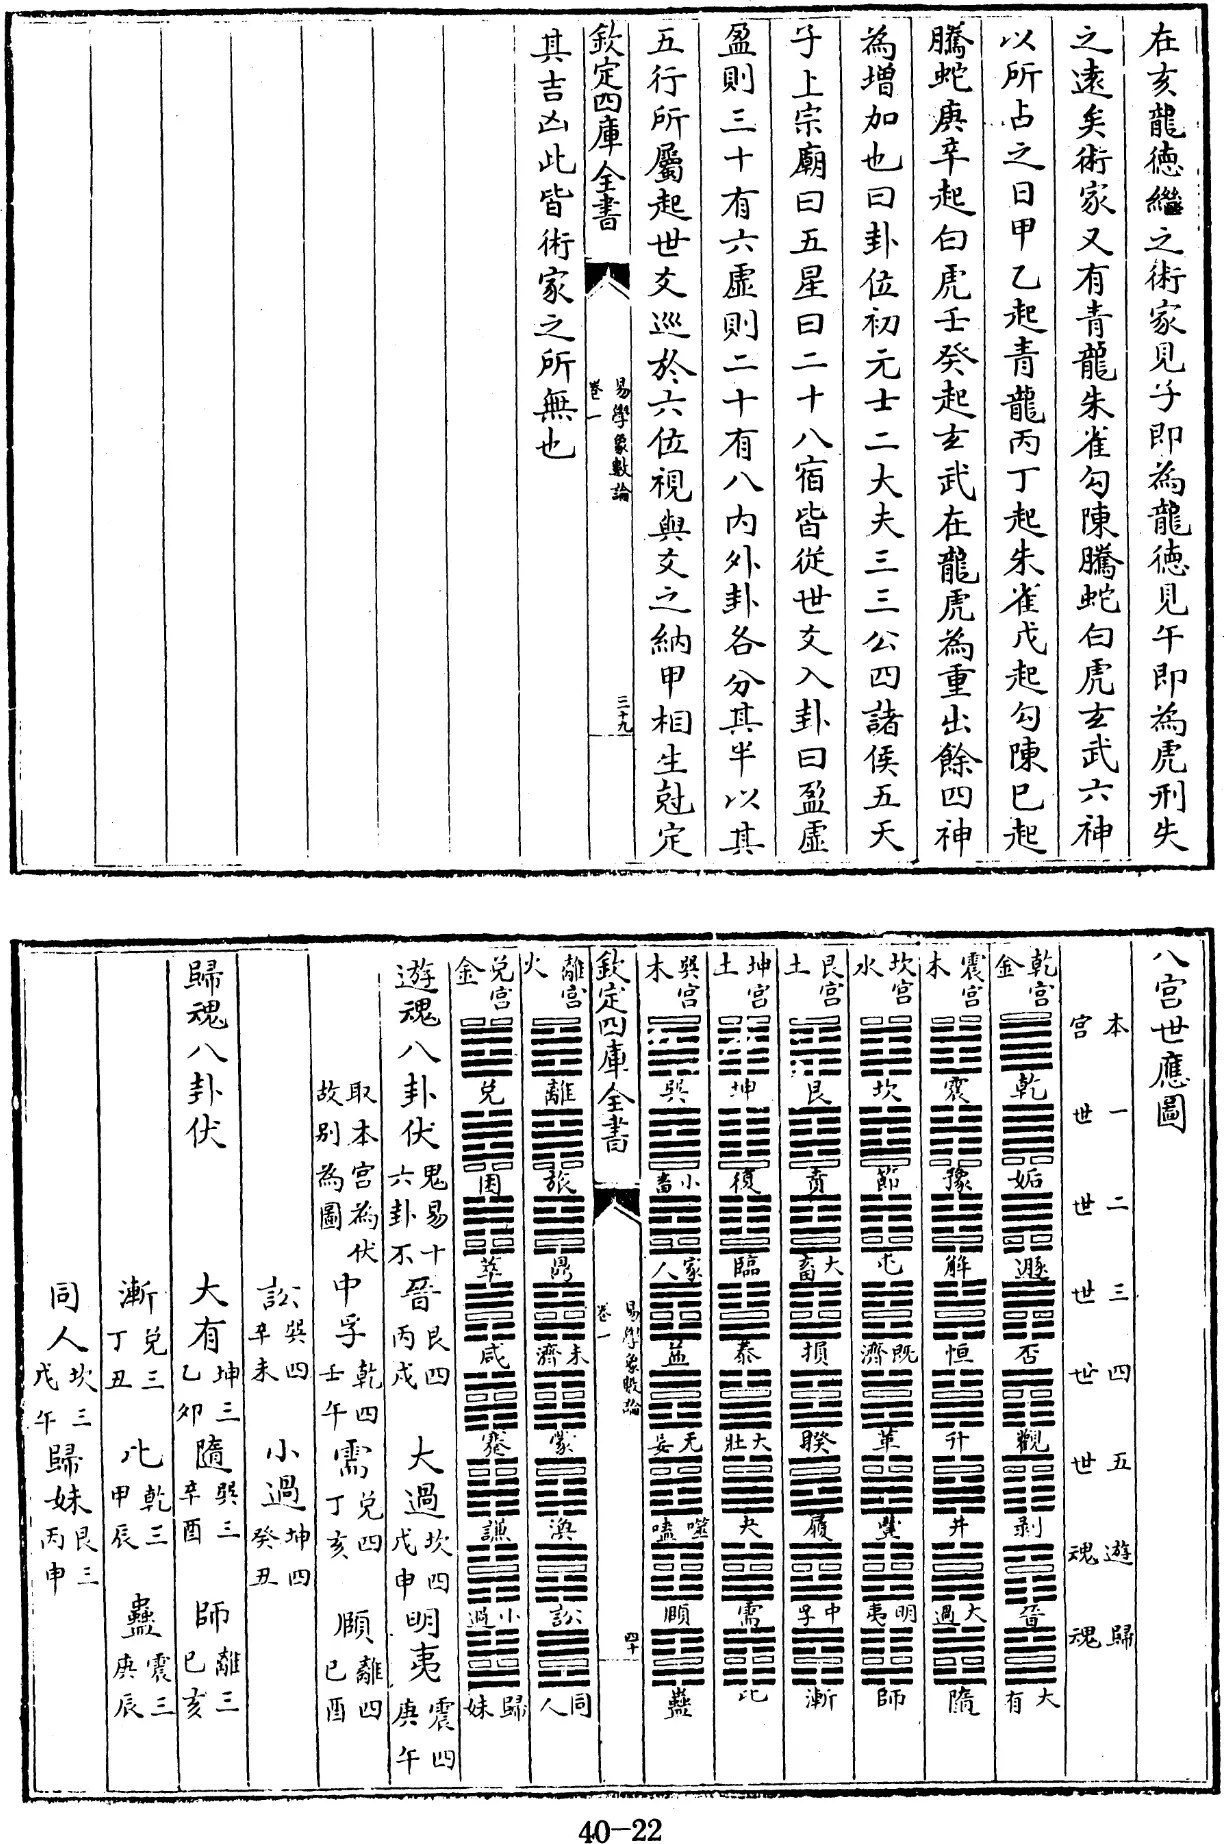 在亥龍德繼之術家見子即為龍德見午即為虎刑失
之遠矣術家又有青龍朱雀勾陳騰蛇白虎玄武六神
以所占之日甲乙起青龍丙丁起朱雀戊起勾陳已起
騰蛇庚辛起白虎壬癸起玄武在龍虎為重出餘四神
為增加也曰卦位初元士二大夫三三公四諸侯五天
子上宗廟曰五星曰二十八宿皆從世爻入卦曰盈虛
盈則三十有六虛則二十有八内外卦各分其半以其
五行所屬起世爻巡於六位視與爻之納甲相生尅定
欽定四庫全書 易學象數論 卷一 三十九
其吉凶此皆術家之所無也
八宮世應圖
本宮 一世 二世 三世 四世 五世 遊魂 歸魂
乾宮金 乾 姤 遯 否 觀 剥 晉 大有
震宮木 震 豫 解 恒 升 井 大過 隨
坎宮水 坎 節 屯 既濟 革 豐 明夷 師
艮宮土 艮 賁 大畜 損 睽 履 中孚 漸
坤宮土 坤 復 臨 泰 大壯 夬 需 比
巽宮木 巽 小畜 家人 益 无妄 噬嗑 頤 蠱
欽定四庫全書 易學象數論 卷一 四十
離宮火 離 旅 鼎 未濟 蒙 渙 訟 同人
兑宮金 兑 困 萃 咸 蹇 謙 小過 歸妹
遊魂八卦伏 鬼易十六卦不 晉 艮四丙戌 大過 坎四戊申 明夷 震四庚午
取本宮為伏故别為圖 中孚 乾四壬午 需 兑四丁亥 頤 離四已酉
訟 巽四辛未 小過 坤四癸丑
歸魂八卦伏 大有 坤三乙卯 隨 巽三辛酉 師 離三已亥
漸 兑三丁丑 比 乾三甲辰 蠱 震三庚辰
同人 坎三戊午 歸妹 艮三丙申
40-22